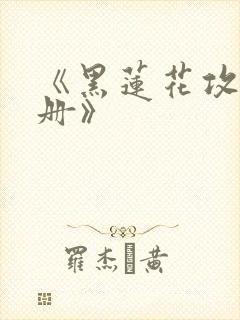 《黑蓮花攻
册》
羅杰 黄